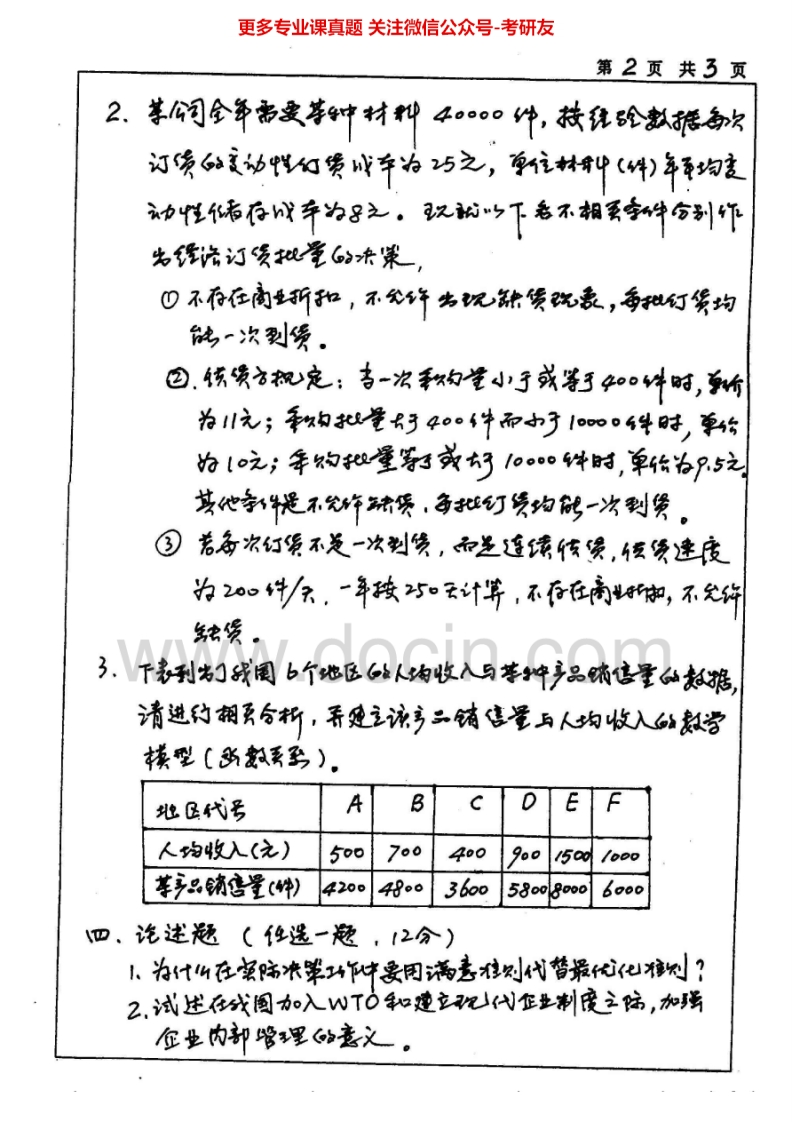 更多专业课真题 关注微信公众号-考研友
第2页 共3页
2. 某公司全年需要某种材料 40000件,按经验数据每次
订货的变动性订货成本为25元,单位材料(件)年平均变
动性储存成本为8元。现就以下各不相关条件分别作
出经济订货批量的决策,
① 不存在商业折扣,不允许出现缺货现象,每批订货均
能一次到货。
②. 供货方规定:当一次采购量小于或等于400件时,单价
为11元;采购批量大于400件而小于10000件时,单价
为10元;采购批量等于或大于10000件时,单价为9.5元。
其他条件是不允许缺货,每批订货均能一次到货。
③ 若每次订货不是一次到货,而是连续供货,供货速度
为200件/天,一年按250天计算,不存在商业折扣,不允许
缺货。
www.docin.com
3. 下表列出了我国6个地区的人均收入与某种产品销售量的数据,
请进行相关分析,并建立该产品销售量与人均收入的数学
模型(函数关系)。
地区代号 A B C D E F
人均收入(元) 500 700 400 900 1500 1000
某产品销售量(件) 4200 4800 3600 5800 8000 6000
四、论述题(任选一题,12分)
1. 为什么在实际决策工作中要用满意准则代替最优化准则?
2. 试述在我国加入WTO和建立现代企业制度之际,加强
企业内部管理的意义。